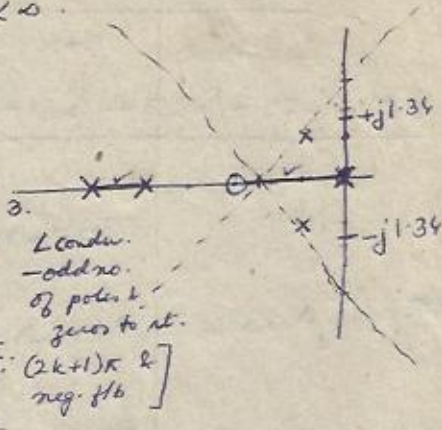 ∠∞.
+j1.34
3.
-j1.34
∠ condn.
- odd no.
of poles &
zeros to rt.
(2k+1)π &
neg. f/b